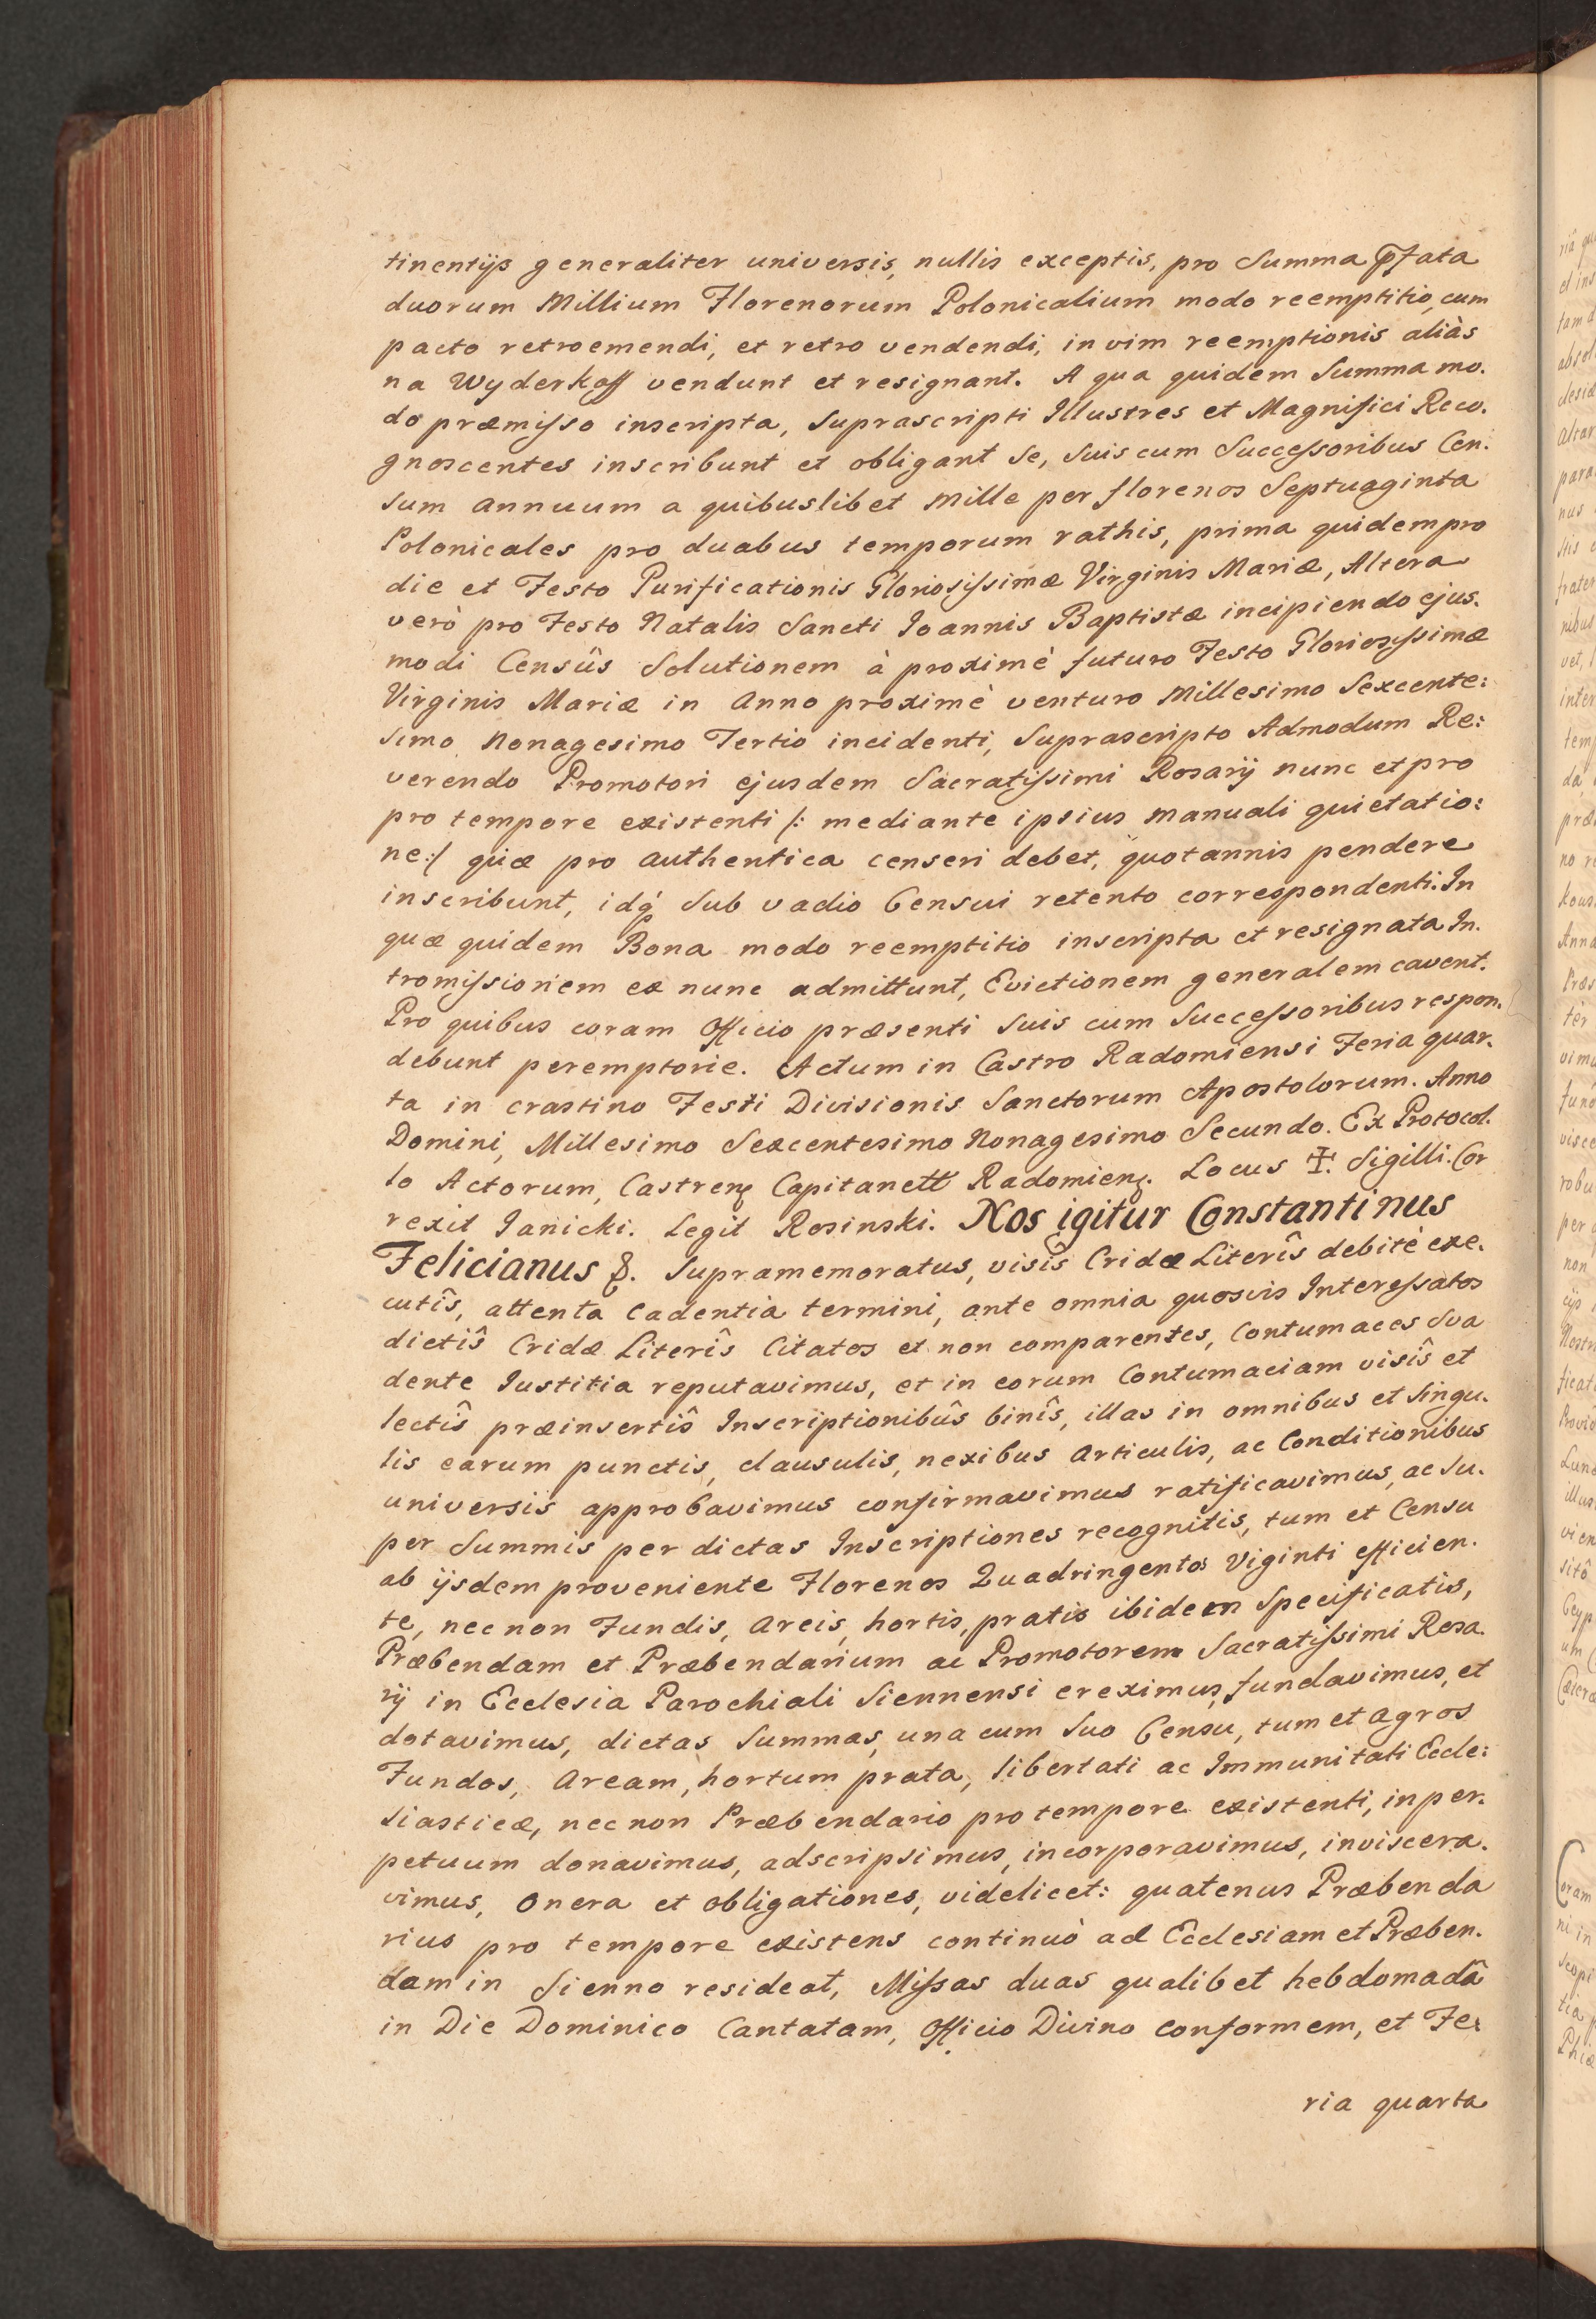 tinentijs generaliter universis, nullis exceptis, pro Summa p̄fata
duorum Millium Florenorum Polonicalium modo reemptitio, cum
pacto retroemendi, et retro vendendi, in vim reemptionis aliàs
na Wyderkoff vendunt et resignant. A qua quidem Summa mo.
do præmiſso inscripta, Suprascripti Illustres et Magnifici Reco.
gnoscentes inscribunt et obligant se, Suis cum Succeſsoribus Cen.
sum annuum a quibuslibet Mille per florenos Septuaginta
Polonicales pro duabus temporum rathis, prima quidem pro
die et Festo Purificationis Gloriosiſsimæ Virginis Mariæ, Altera
verò pro Festo Natalis Sancti Ioannis Baptistæ incipiendo ejus.
modi Censûs Solutionem à proximè futuro Festo Gloriosiſsimæ
Virginis Mariæ in Anno proximè venturo Millesimo Sexcente:
simo Nonagesimo Tertio incidenti, Suprascripto Admodum Re:
verendo Promotori ejusdem Sacratiſsimi Rosarij nunc et pro
pro tempore existenti /: mediante ipsius manuali quietatio:
ne :/ quæ pro authentica censeri debet, quotannis pendere
inscribunt, idq́ Sub vadio Censui retento correspondenti. In
quæ quidem Bona modo reemptitio inscripta et resignata In.
tromiſsionem ex nunc admittunt, Evictionem generalem cavent.
Pro quibus coram Officio præsenti Suis cum Succeſsoribus respon.
debunt peremptorie. Actum in Castro Radomiensi Feria quar.
ta in crastino Festi Divisionis Sanctorum Apostolorum. Anno
Domini, Millesimo Sexcentesimo Nonagesimo Secundo. Ex Protocol.
lo Actorum, Castrenꝭ Capitanett Radomienꝭ. Locus ✝. Sigilli. Cor
rexit Janicki. Legit Rosinski. Nos igitur Constantinus
Felicianus &. Supramemoratus, visîs Cridæ Literîs debitè exe.
cutîs, attenta cadentia termini, ante omnia quosvis Intereſsatos
dictîs Cridæ Literîs Citatos et non comparentes, Contumaces Sua
dente Iustitia reputavimus, et in eorum Contumaciam visîs et
lectîs præinsertîs Inscriptionibûs binîs, illas in omnibus et Singu.
lis earum punctis, clausulis, nexibus Articulis, ac Conditionibus
universis approbavimus confirmavimus ratificavimus, ac Su.
per Summis per dictas Inscriptiones recognitis, tum et Censu
ab ijsdem proveniente Florenos Quadringentos Viginti efficien.
te, nec non Fundis, Areis, hortis, pratis ibidem Specificatis,
Præbendam et Præbendarium ac Promotorem Sacratiſsimi Rosa.
rij in Ecclesia Parochiali Siennensi ereximus, fundavimus, et
dotavimus, dictas Summas, una cum Suo Censu, tum et agros
Fundos, Aream, hortum prata, libertati ac Immunitati Eccle:
siasticæ, nec non Præbendario pro tempore existenti, in per.
petuum donavimus, adscripsimus, incorporavimus, inviscera.
vimus, Onera et obligationes, videlicet: quatenus Præbenda
rius pro tempore existens continuò ad Ecclesiam et Præben.
dam in Sienno resideat, Miſsas duas qualibet hebdomadâ
in Die Dominico Cantatam, Officio Divino conformem, et Fe.
ria quarta